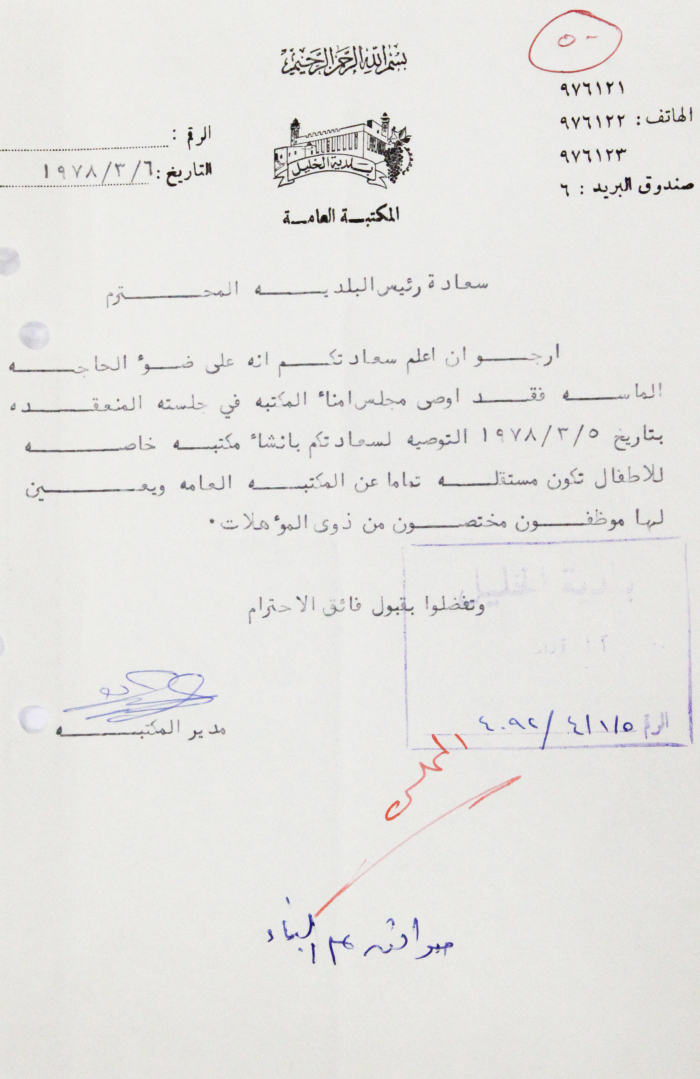 ٥٠
بسم الله الرحمن الرحيم
٩٧٦١٢١
الهاتف : ٩٧٦١٢٢
٩٧٦١٢٣
صندوق البريد : ٦
بلدية الخليل
المكتبة العامة
الرقم :
التاريخ : ١٩٧٨/٣/٦
سعادة رئيس البلديه المحترم
ارجو ان اعلم سعادتكم انه على ضوء الحاجه
الماسه فقد اوصى مجلس امناء المكتبه في جلسته المنعقده
بتاريخ ١٩٧٨/٣/٥ التوصيه لسعادتكم بانشاء مكتبه خاصه
للاطفال تكون مستقله تماما عن المكتبه العامه ويعين
لها موظفون مختصون من ذوى المؤهلات ٠
وتفضلوا بقبول فائق الاحترام
بلدية الخليل
الرقم ٤٠٩٢/٤/١/٥
مدير المكتبه
المجلس